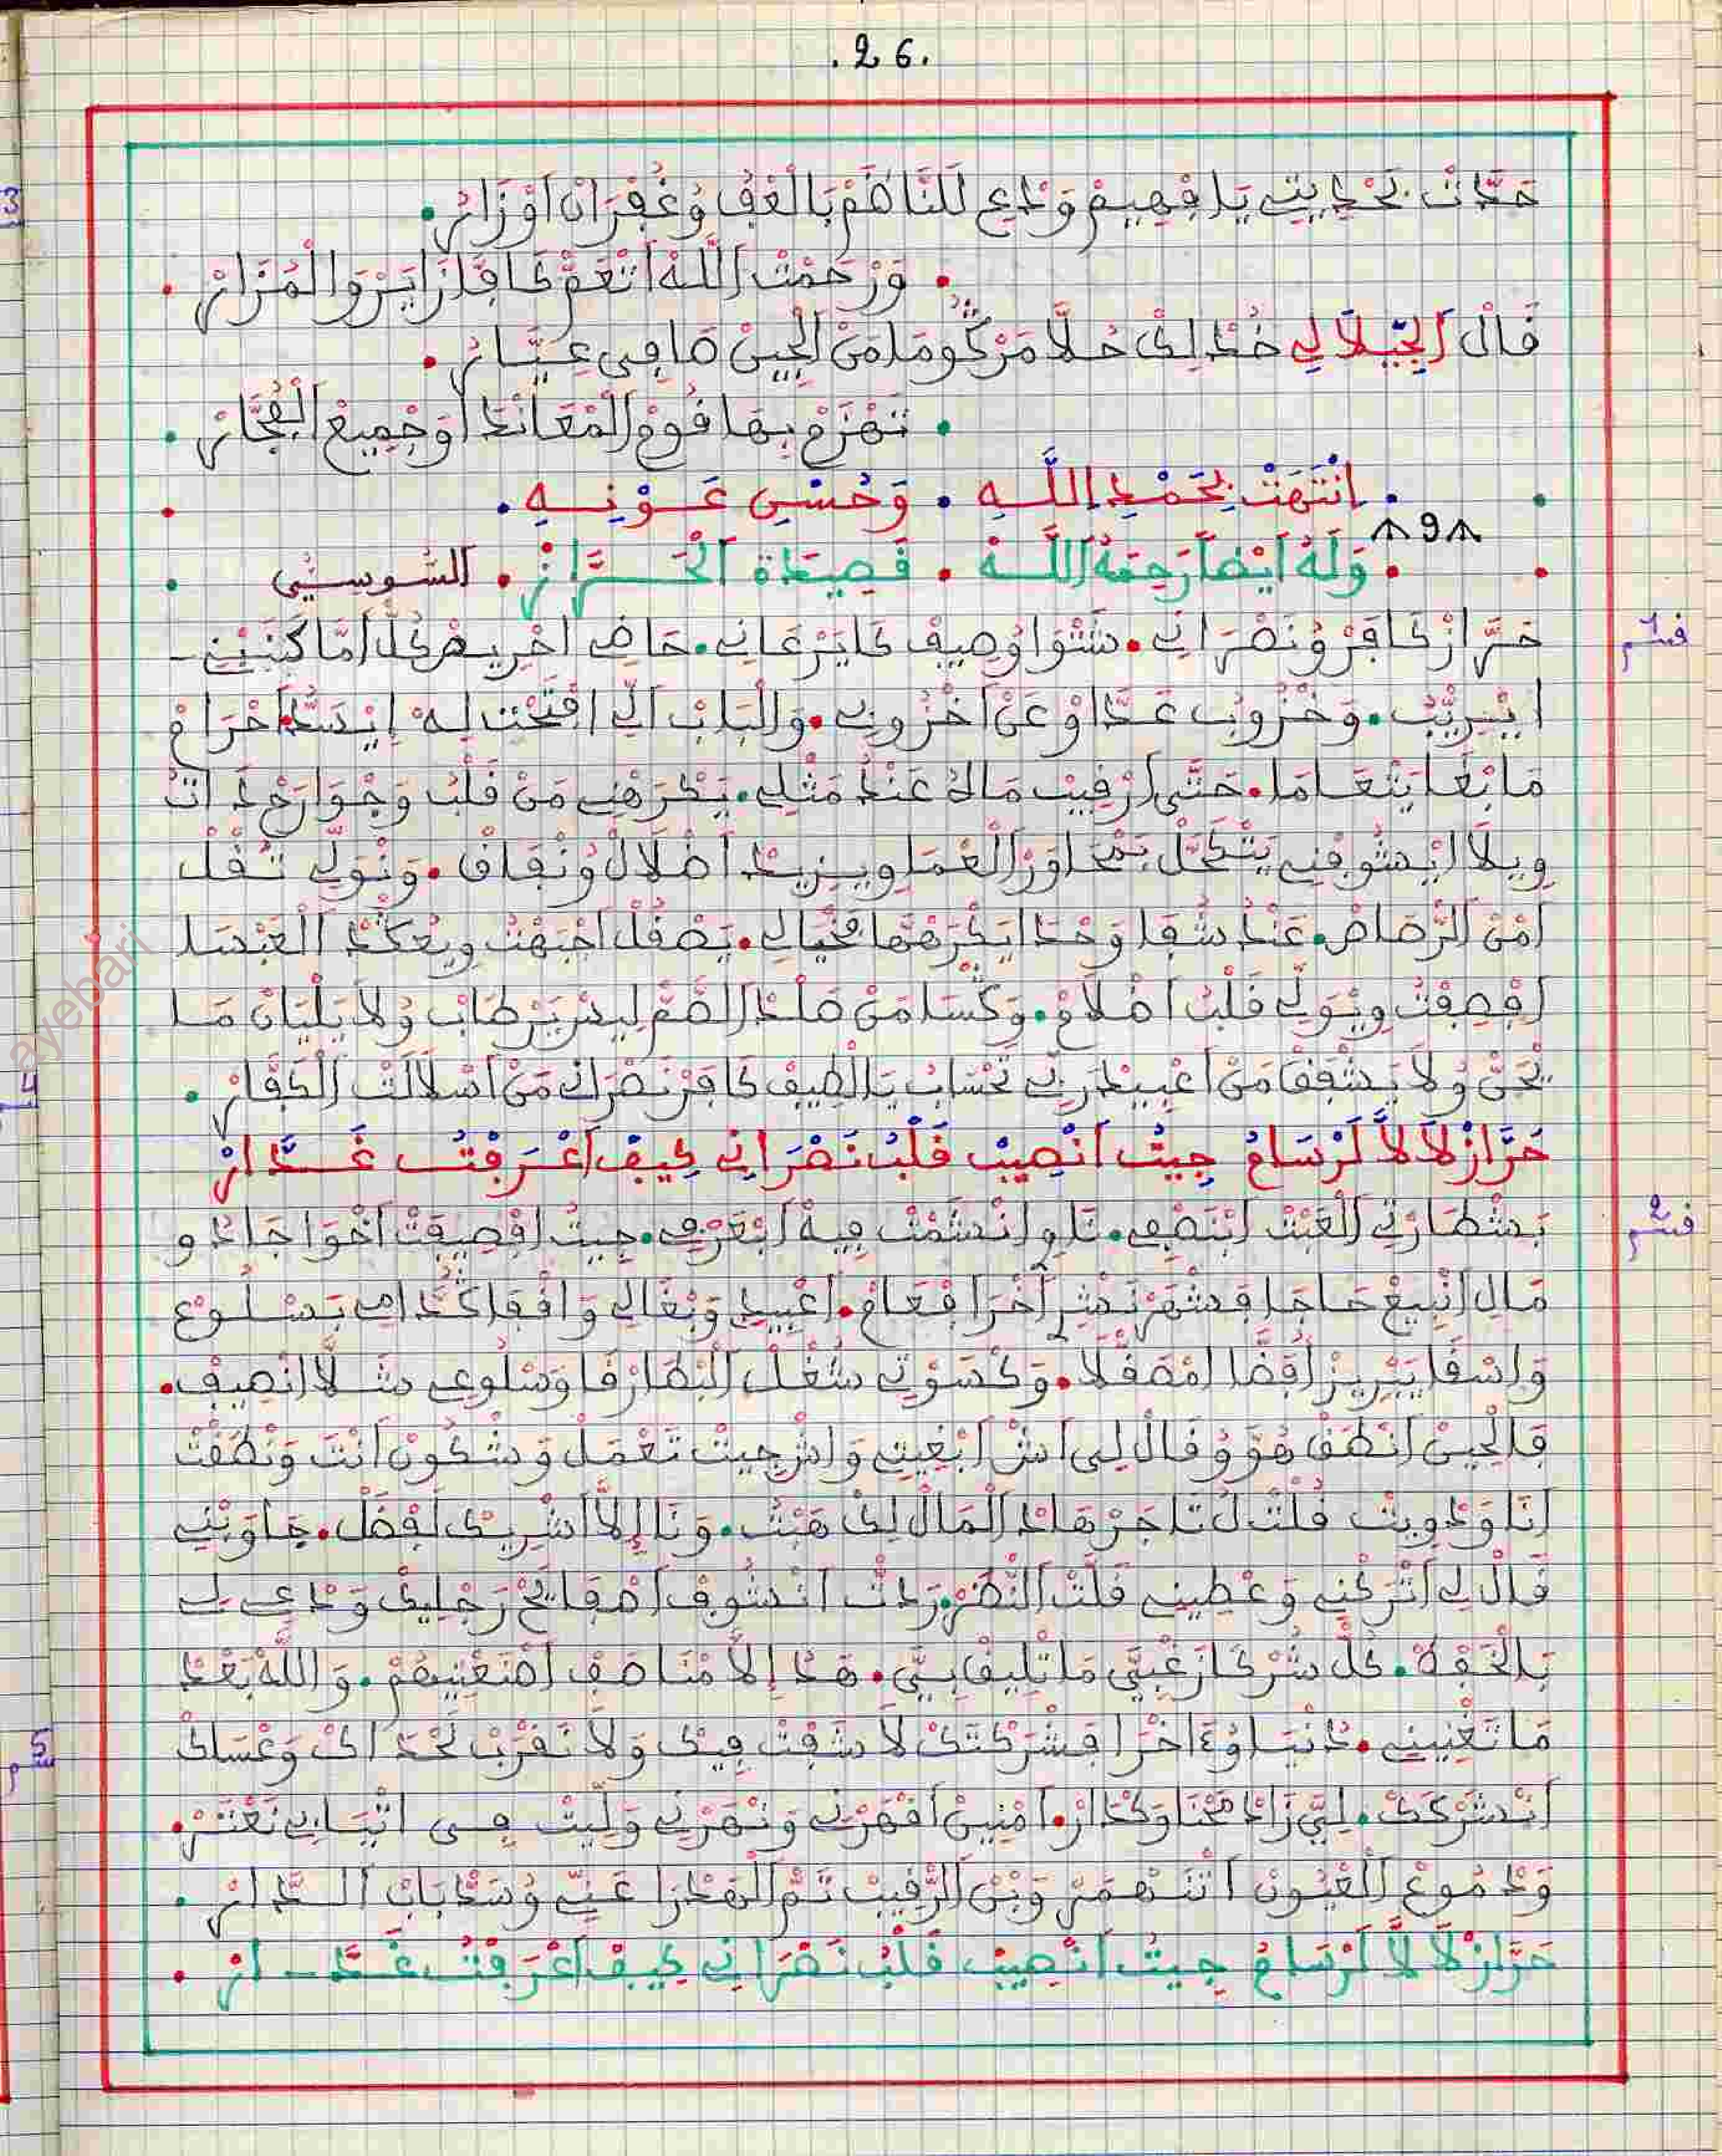 .26.
حَدَّثْ بَحْدِيثِي يَا فْهِيمْ وَدْعِ لَلنَّاظَمْ بَالْعْفُ وُغُفْرَانْ اَوْزَارُ.
. وَرْحَمْتْ اَللَّهْ اتْعَمّْ كَافَّ زَايَرْ وَالْمُزَارْ .
قَالْ اَلْجِّيلَالِي خُدْ لِكْ حُلَّا مَرْكُومَا مَنْ الْجِينْ صَافِي عِيَّارُ.
. تَهْزَمْ بِهَا قُومْ الْمْعَانْدَا اُوجْمِيعْ الْفُجَّارْ .
. اِنْتَهَتْ بِحَمْدِ اللَّهِ . وَحُسْنِ عَوْنِهِ .
٨ 9 ٨
. وَلَهُ اَيْضاً رَحِمَهُ اَللَّهْ . قَصِيدَة اَلْحَرَّازْ . اَلسُّوسِيِّ
قسم 1
حَرَّازْ كَافَرْ وُنَصْرَانِي. شَتْوَا وُصِيفْ كَايَرْعَانِي. حَاضِي اخْرِيصْ كُلّْ اَمَّا كَتَبْنِي
ايْرِيّبْ. وَحْزُوبُ عَدَّاوْ عَنْ اَحْزُوبِي. وَالْبَابْ اَلِّي افْتَحْتْ لِهْ اِيْسَدّْ احْرَامْ
مَا بْغَا يَتْعَامَا. حَتَّى ارْقِيبْ مَالُ عَنْدُ مَثْلِي. يَكْرَهْنِي مَنْ قَلْبُ وَجْوَارَحْ دَاتُ
وِيلَا ايْشُوفْنِي يَتْكَحَّلْ بَمْحَاوَرْ الْعْمَا وِيزِيدْ اضْلَالْ وُنْفَاقْ. وَنْوَلِّي تَقْلْ
اَمْنْ اَلرّْصَاصْ. عَنْدُ شْقَا وَحْدَا يَكْرَهْهَا فْخْيَالِي. يَصْقَلْ اجْبَهْتُ وِيعْكَّدْ الْعَبْسَا
اَفْصِفْتُ وِيْوَلِّي قَلْبُ اظْلَامْ. وَكْسَا مَنْ صَلْدْ الصَّمّْ لِيسْ يَرْطَابْ وُلَا يَلْيَانْ مَا
يْحَنّْ وُلَا يَشْفَقْ مَنْ اعْبِيدْ رَبِّي تَحْسَابُ يَا لْطِيفْ كَافَرْ نَصْرَانِي مَنْ اسْلَالَتْ الْكَفَّارْ .
حَرَّازْ لَالَّا لَرْسَامُ جِيتْ اَنْصِيبْ قَلْبُ نَصْرَانِي كِيفْ اَعْرَفْتُ غَدَّارْ
قسم 2
بَشْطَارْتِي الْعَبْتْ ابْنَصْفِي. تَاوْ انْدَشَّمْتْ فِيهْ ابْعَرْفِي. جِيتُ افْصِيفَتْ اخْوَاجَا دُو
مَالْ انْبِيعْ حَاجَا فْشْهَرْ نَشْرِ اُخْرَا فْعَامْ. اعْبِيدِي وَبْغَالِي وَاقْفَا قُدَّامِي بَسْلُوعْ
وَاسْفَا يَبْرِيزْ اُفَضَّا امْصَقْلَا. وَكْسَوْتِي شُغْلْ الْبْطَارْقَا وَسْلُوعِي شَلَّا اِنْصِيفْ.
فَالْحِينْ اَنْطَقْ هُوَ وُقَالْ لِي اَشْ ابْغِيتِي وَاشْ جِيتْ تَعْمَلْ وَشْكُونْ اَنْتَ وَنْطَقْتْ
اَنَا وَجْوِبْتُ قُلْتْ لُ تَاجَرْ هَادْ اَلْمَالْ لِكْ هْبْتُ. وَنَا اِلَّا اَشْرِيكْ اَفْضَلْ. جَاوَبْنِي
قَالْ لِي اَتْرَكْنِي وَعْطِينِي قَلَّتْ اَلنّْظَرْ رَدْتْ اَنْشُوفْ اصْفَايَحْ رَجْلِيكْ وَدْعِي لِي
بَالْخَفَّا. كُلّْ شَرْكَا زَغْبِيَّ مَا تْلِيقْ بِيَّ. هَدْ اِلَّا مْنَاصَفْ اصْنَعْتِيهُمْ. وَاللَّهْ بَعْدْ
مَا تَغْنِينِي. دُنْيَا وُءَاخْرَا فْشَرْكَتَكْ لَا شَفْتْ فِيكْ وَلَا نَقْرَبْ لَحْدَاكْ وَعْسَاكْ
اَنْشَرْكَكْ. لِيَّ زَادْ مَحْنَا وَكْدَارْ. اَمْنِينْ اقْهَرْنِي وَنْهَرْنِي وَلِّيتْ فِي اثْيَابِي نَعْثَرْ.
وَدْمُوعْ الْعْيُونْ اَتْنَهْمَرْ وَبْقَ الرّْقِيبْ ثَمّْ الْهَدْرَا عَنِّي وُسَدّْ بَابْ اَلدَّارْ .
حَرَّازْ لَالَّا لَرْسَامُ جِيتْ اَنْصِيبْ قَلْبُ نَصْرَانِي كِيفْ اَعْرَفْتُ غَدَّارْ .
ayebari